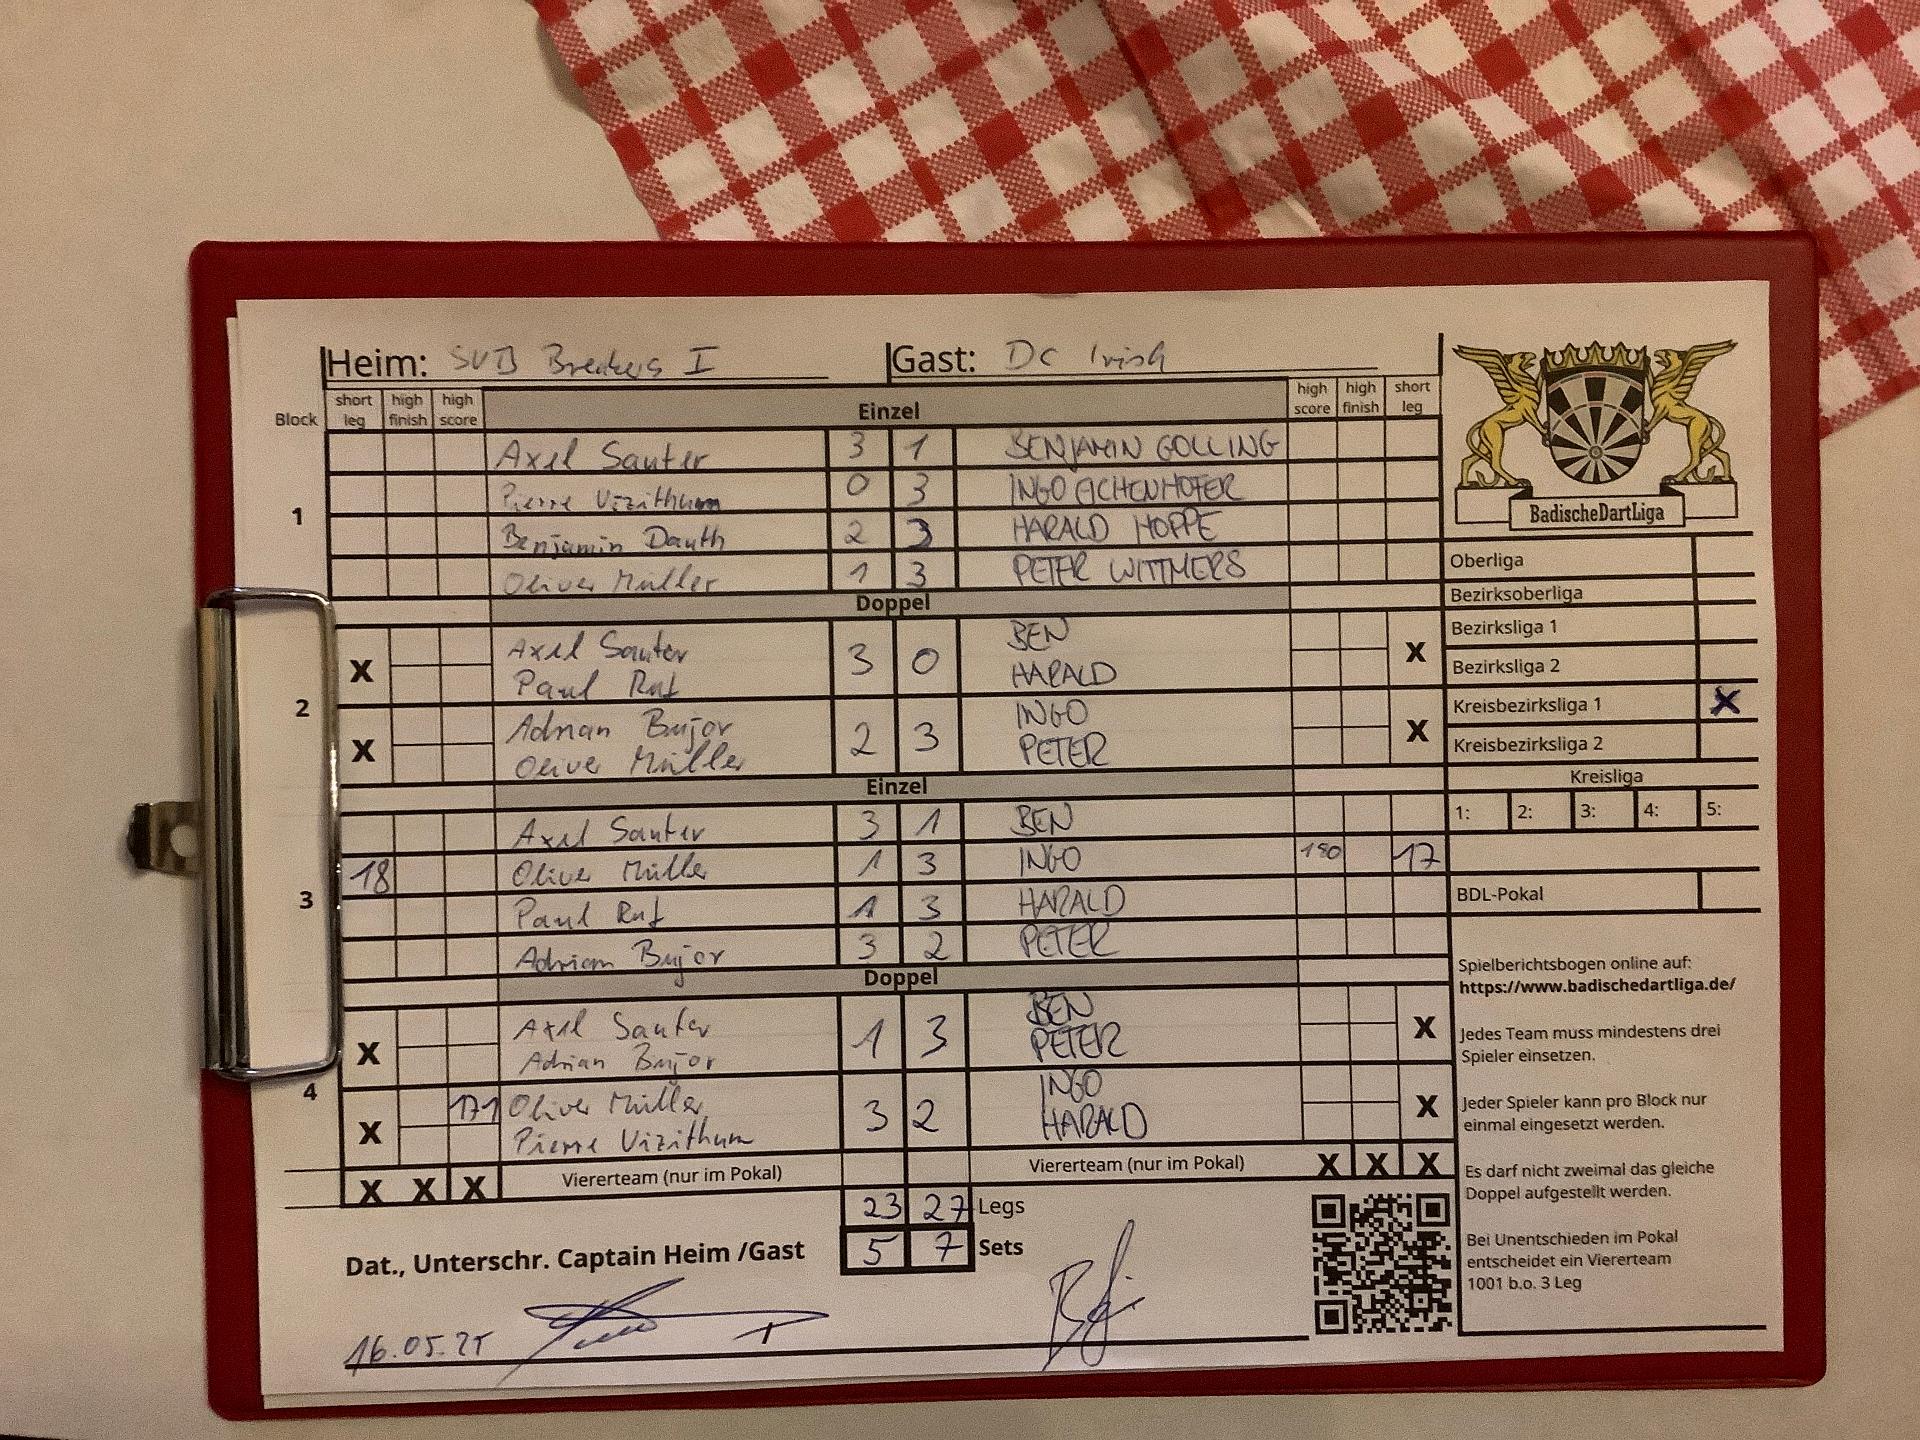 Heim: SVB Breakers I Gast: DC Irish
Block short leg high finish high score Einzel high score high finish short leg
1
Axel Sauter 3 1 BENJAMIN GOLLING
Pierre Vizithum 0 3 INGO EICHENHOFER
Benjamin Dauth 2 3 HARALD HOPPE
Oliver Müller 1 3 PETER WITTMERS
Doppel
2
X Axel Sauter 3 0 BEN X
Paul Ruf HARALD
X Adrian Bujor 2 3 INGO X
Oliver Müller PETER
Einzel
3
Axel Sauter 3 1 BEN
18 Oliver Müller 1 3 INGO 180 17
Paul Ruf 1 3 HARALD
Adrian Bujor 3 2 PETER
Doppel
4
X Axel Sauter 1 3 BEN X
Adrian Bujor PETER
X 171 Oliver Müller 3 2 INGO X
Pierre Vizithum HARALD
X X X Viererteam (nur im Pokal) Viererteam (nur im Pokal) X X X
23 27 Legs
5 7 Sets
Dat., Unterschr. Captain Heim /Gast
16.05.25
BadischeDartLiga
Oberliga
Bezirksoberliga
Bezirksliga 1
Bezirksliga 2
Kreisbezirksliga 1 X
Kreisbezirksliga 2
Kreisliga
1: 2: 3: 4: 5:
BDL-Pokal
Spielberichtsbogen online auf:
https://www.badischedartliga.de/
Jedes Team muss mindestens drei
Spieler einsetzen.
Jeder Spieler kann pro Block nur
einmal eingesetzt werden.
Es darf nicht zweimal das gleiche
Doppel aufgestellt werden.
Bei Unentschieden im Pokal
entscheidet ein Viererteam
1001 b.o. 3 Leg